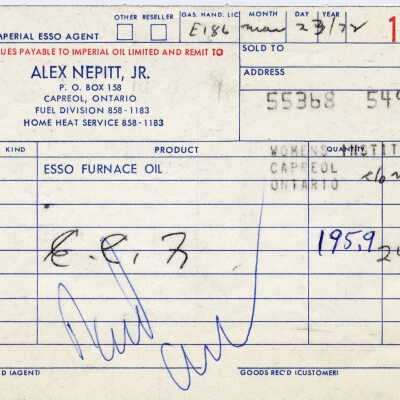 OTHER RESELLER GAS. HAND. LIC MONTH DAY YEAR
IMPERIAL ESSO AGENT E186 mar 23/72 1
UES PAYABLE TO IMPERIAL OIL LIMITED AND REMIT TO SOLD TO
ALEX NEPITT, JR. ADDRESS
P. O. BOX 158
CAPREOL, ONTARIO 55368 549
FUEL DIVISION 858-1183
HOME HEAT SERVICE 858-1183
KIND PRODUCT QUANTITY WOMENS INSTIT
ESSO FURNACE OIL CAPREOL c/o
ONTARIO
195.9
D (AGENT) GOODS REC'D (CUSTOMER)